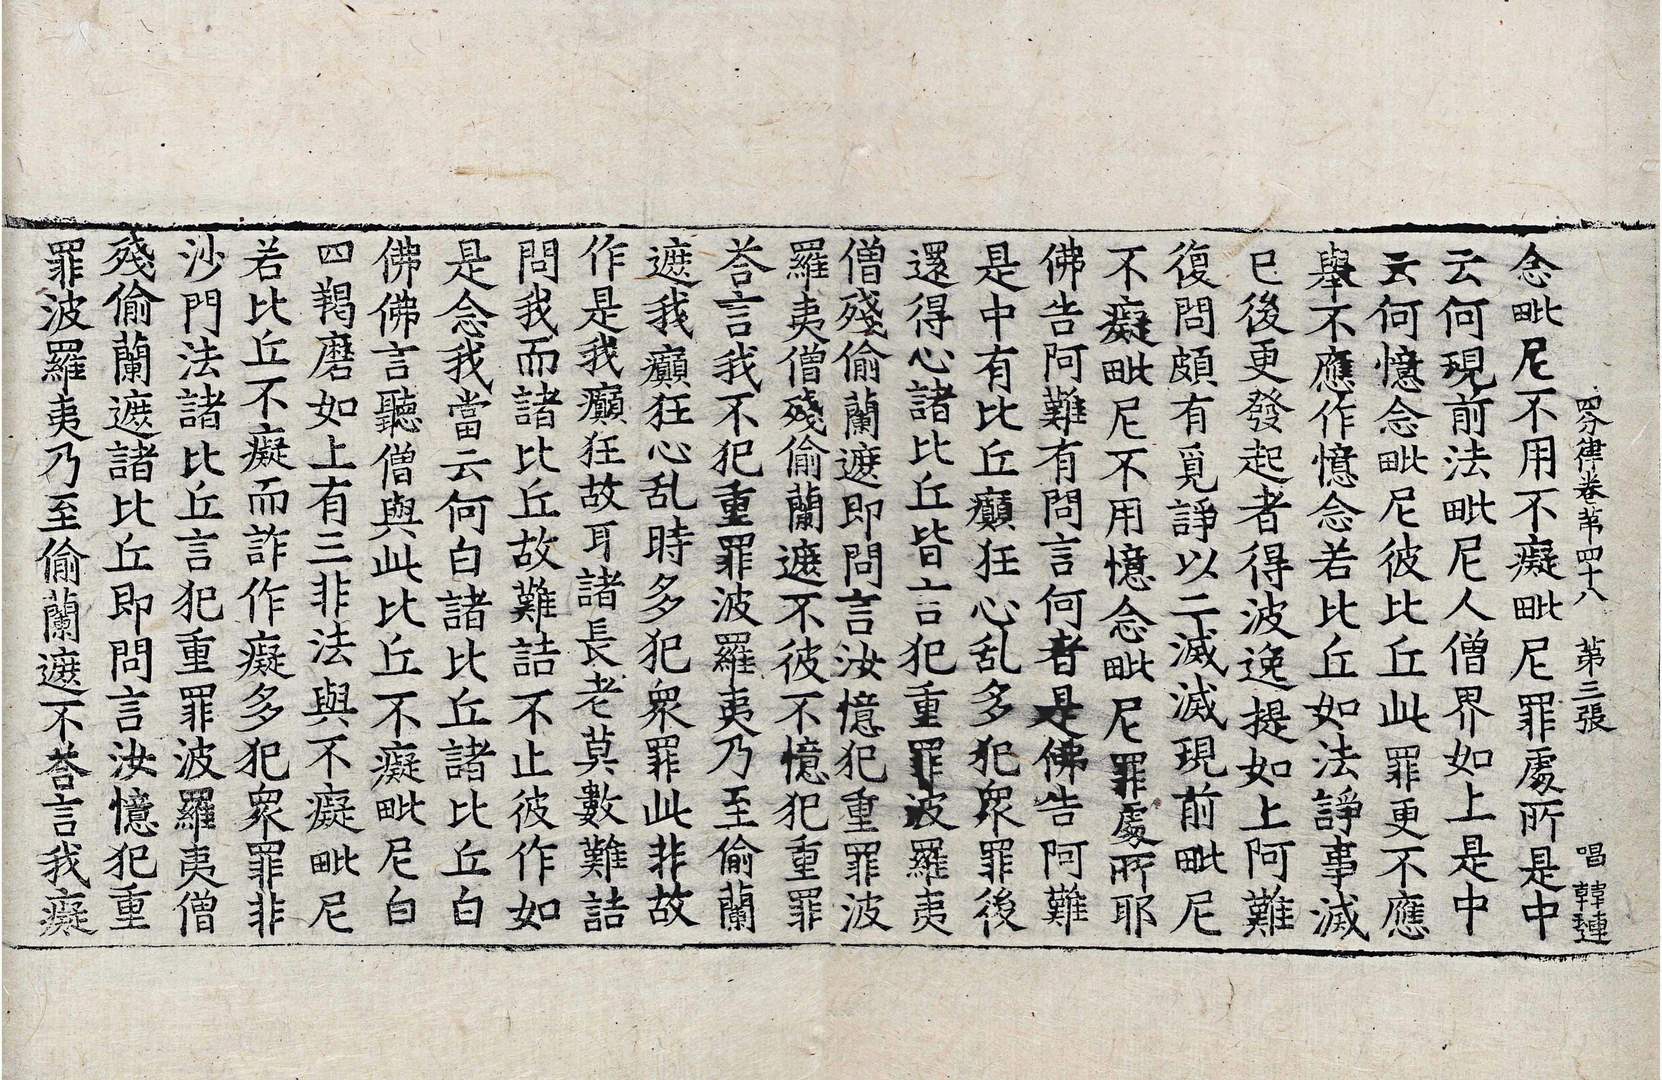 四分律卷苐四十八　第三張　唱　韓璉
念毗尼不用不癡毗尼罪處所是中
云何現前法毗尼人僧界如上是中
云何憶念毗尼彼比丘此罪更不應
舉不應作憶念若比丘如法諍事滅
已後更發起者得波逸提如上阿難
復問頗有覓諍以二滅滅現前毗尼
不癡毗尼不用憶念毗尼罪處所耶
佛告阿難有問言何者是佛告阿難
是中有比丘癲狂心乱多犯衆罪後
還得心諸比丘皆言犯重罪波羅夷
僧殘偷蘭遮即問言汝憶犯重罪波
羅夷僧殘偷蘭遮不彼不憶犯重罪
荅言我不犯重罪波羅夷乃至偷蘭
遮我癲狂心乱時多犯衆罪此非故
作是我癲狂故耳諸長老莫數難詰
問我而諸比丘故難詰不止彼作如
是念我當云何白諸比丘諸比丘白
佛佛言聽僧與此比丘不癡毗尼白
四羯磨如上有三非法與不癡毗尼
若比丘不癡而詐作癡多犯衆罪非
沙門法諸比丘言犯重罪波羅夷僧
殘偷蘭遮諸比丘即問言汝憶犯重
罪波羅夷乃至偷蘭遮不荅言我癡